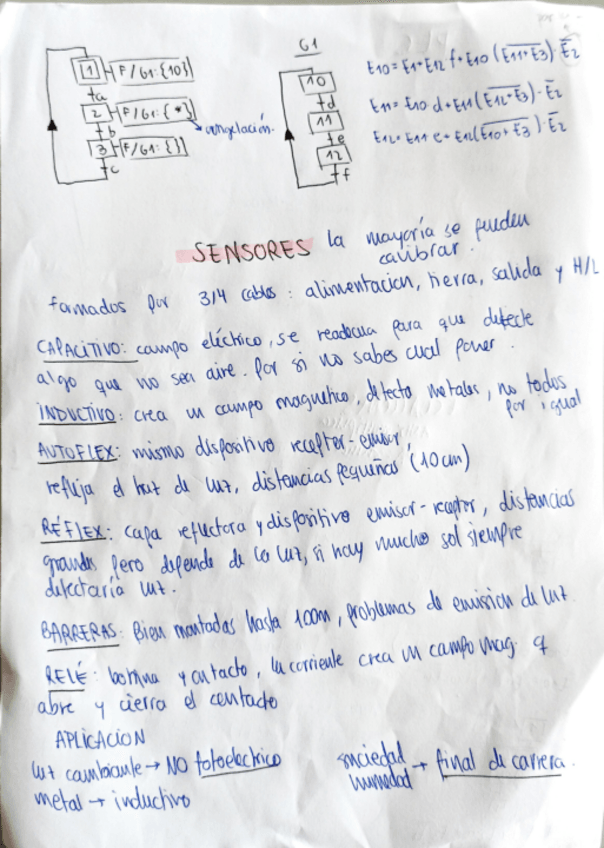 1 F/G1:{10}
a
2 F/G1:{*}
congelación.
b
3 F/G1:{}
c
G1
10
d
11
e
12
f
E10 = E1+E12 f+E10 (E11+E3) E2
E11 = E10 d+E11(E12+E3) · E2
E12 = E11 e+E12(E10+E3) · E2
SENSORES la mayoría se pueden
calibrar.
formados por 3/4 cables: alimentacion, tierra, salida y H/L
CAPACITIVO: campo eléctrico, se readecua para que detecte
algo que no sea aire. Por si no sabes cual poner.
INDUCTIVO: crea un campo magnetico, detecta metales, no todos
por igual
AUTOFLEX: mismo dispositivo receptor-emisor,
refleja el haz de luz, distancias pequeñas (10cm)
RÉFLEX: capa reflectora y dispositivo emisor-receptor, distancias
grandes pero depende de la luz, si hay mucho sol siempre
detectaría luz.
BARRERAS: Bien montadas hasta 100m, problemas de emision de luz.
RELÉ: bobina y contacto, la corriente crea un campo mag. q
abre y cierra el contacto
APLICACION
luz cambiante → NO fotoelectrico
metal → inductivo
suciedad
humedad → final de carrera.